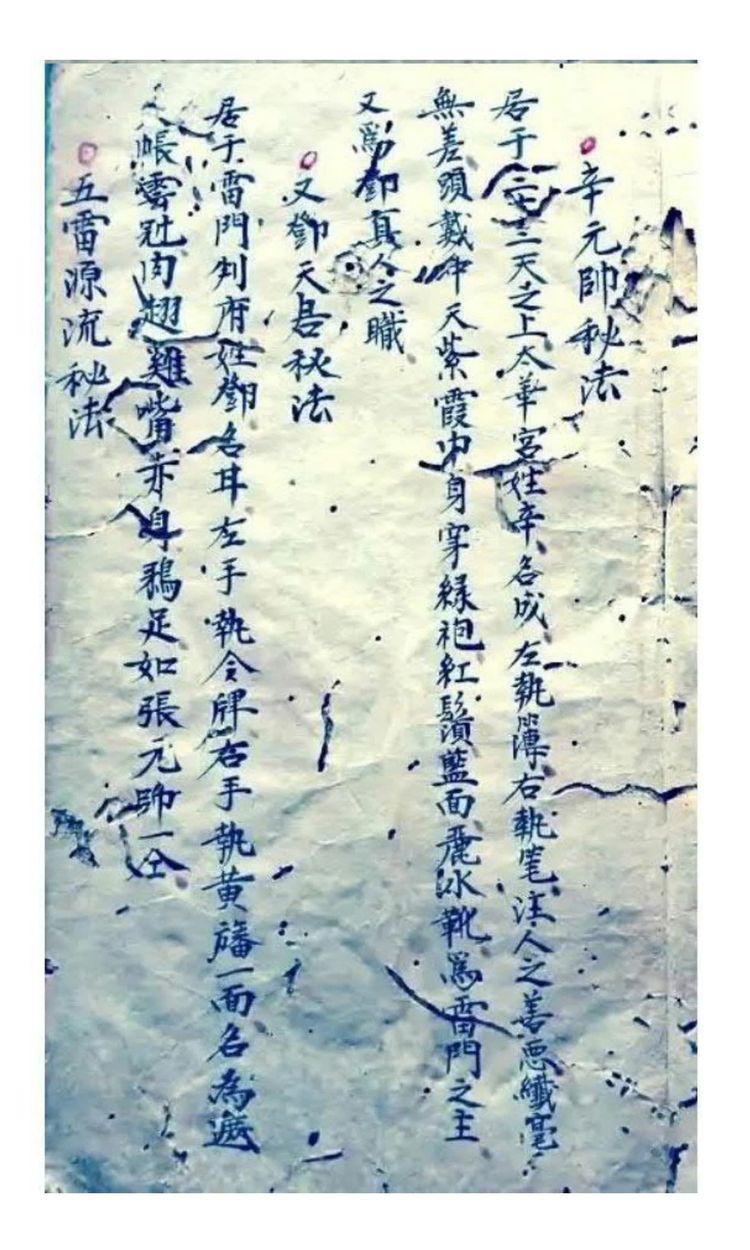 辛元帥秘法
居于三十三天之上太華宮姓辛名成左執簿右執笔注人之善悪纖毫
無差頭戴冲天紫霞巾身穿緑袍紅鬚藍面鹿水靴為雷門之主
又為鄧真人之職
又鄧天君秘法
居于雷門判府姓鄧名耳左手執令牌右手執黄旛一面名為
帳雲冠肉翅雞嘴赤身鴉足如張元帥一仝
五雷源流秘法